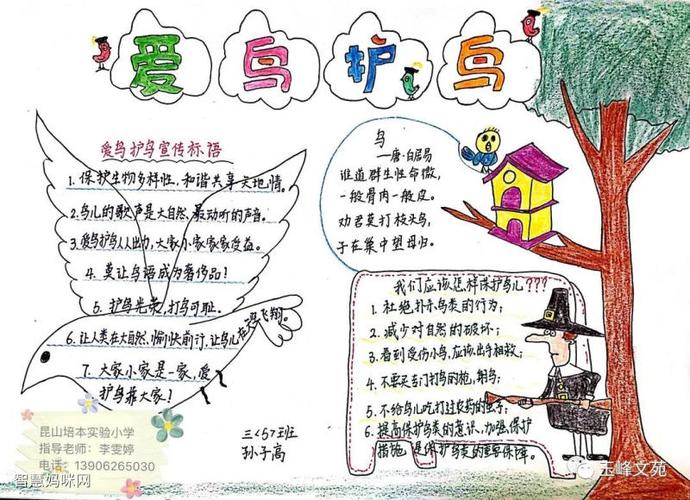 爱鸟护鸟
爱鸟护鸟宣传标语
1. 保护生物多样性，和谐共享天地情。
2. 鸟儿的歌声是大自然最动听的声音。
3. 爱鸟护鸟人人出力，大家小家家家受益。
4. 莫让鸟语成为奢侈品！
5. 护鸟光荣，打鸟可耻。
6. 让人类在大自然愉快前行，让鸟儿在
7. 大家小家是一家，爱
护鸟靠大家！
三<5>班
孙子高
鸟
—唐·白居易
谁道群生性命微，
一般骨肉一般皮。
劝君莫打枝头鸟，
子在巢中望母归。
我们应该怎样保护鸟儿???
1. 杜绝捕杀鸟类的行为；
2. 减少对自然的破坏；
3. 看到受伤小鸟，应该出手相救；
4. 不要买专门打鸟的枪，
5. 不给鸟儿吃打过农药的虫子；
6. 提高保护鸟类的意识，加强保护
措施是保护鸟类的重要保障。
昆山培本实验小学
指导老师：李雯婷
电话：13906265030
智慧妈咪网
玉峰文苑